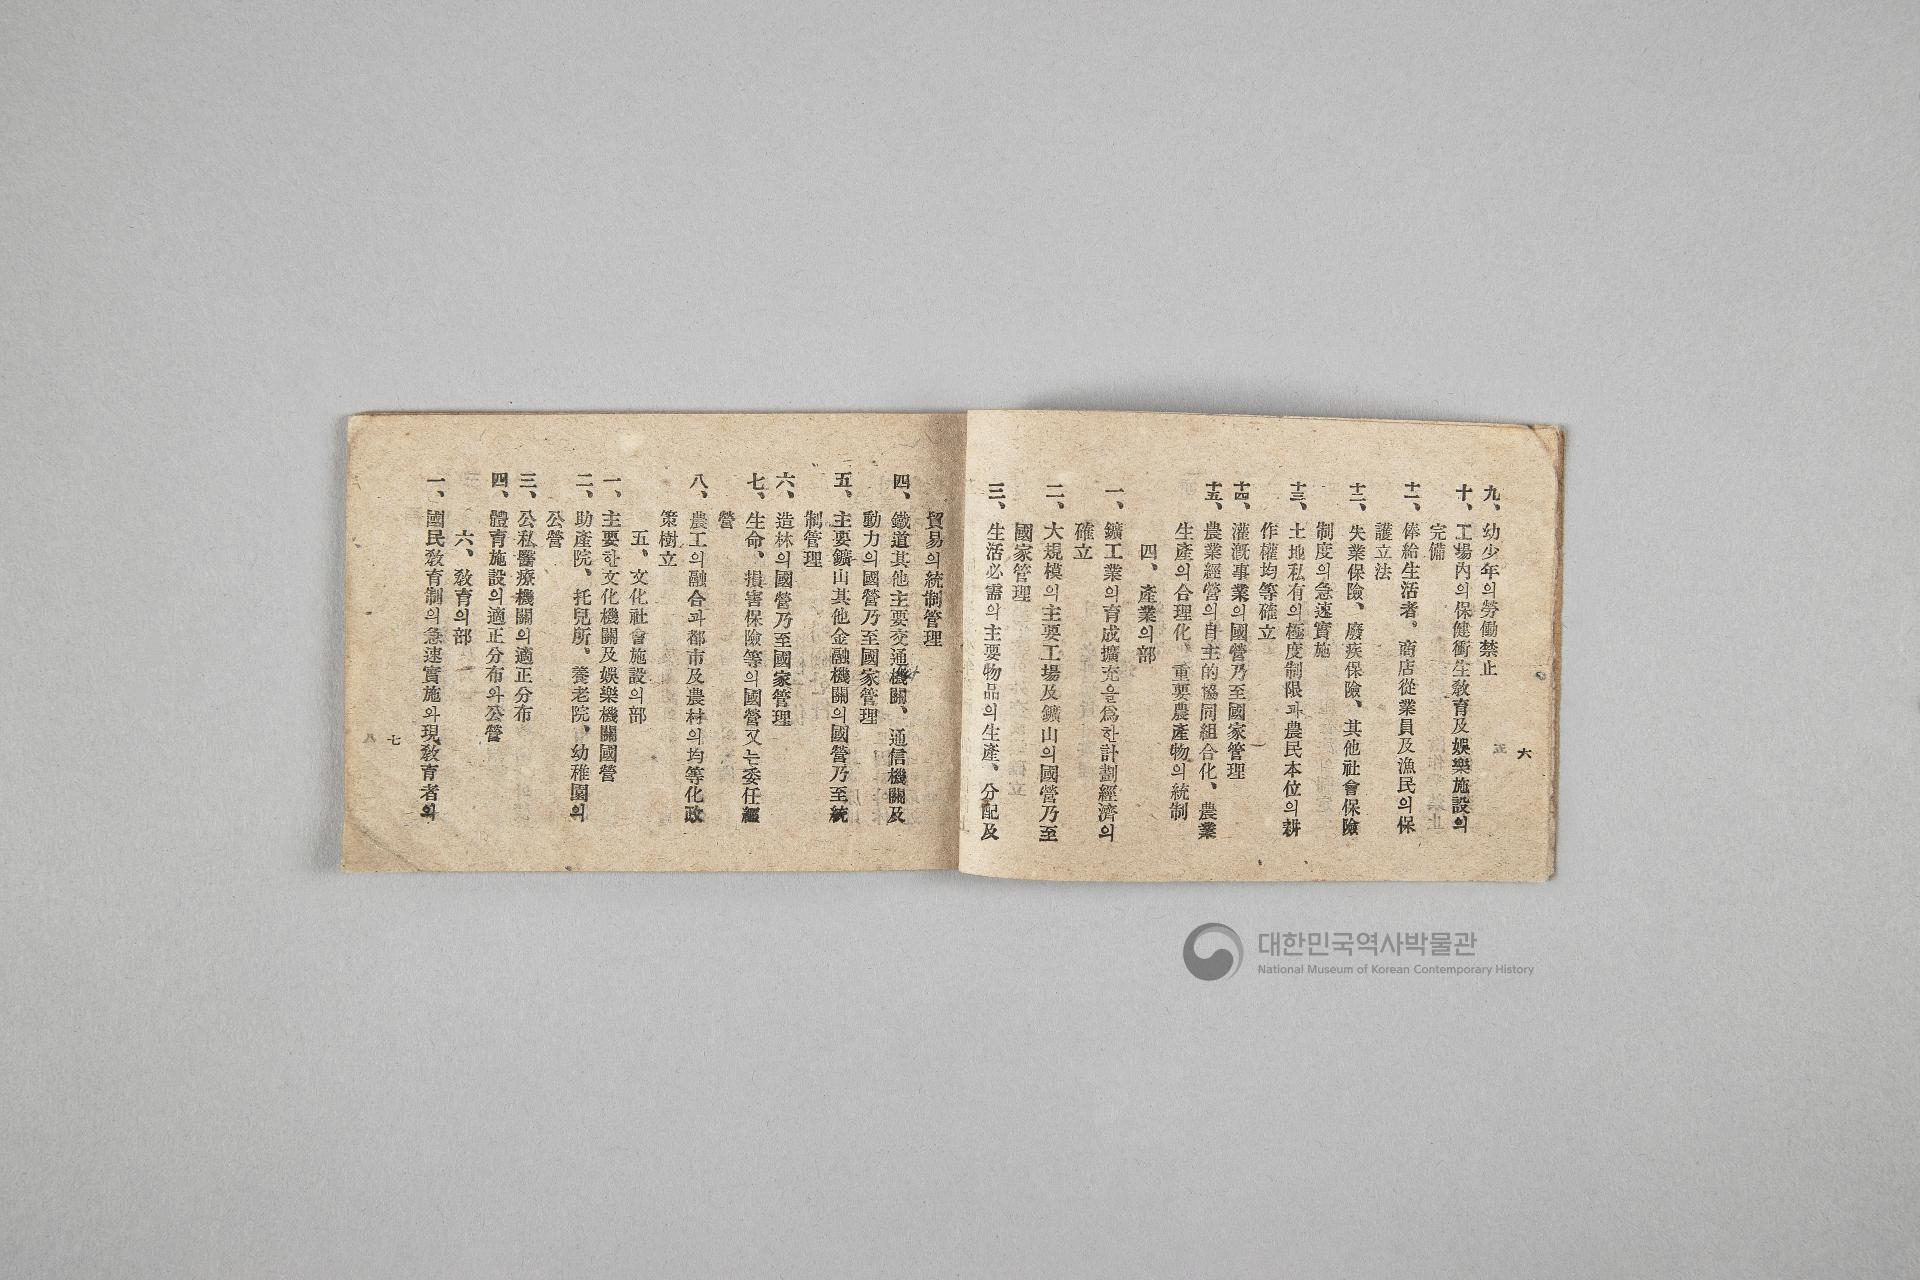 九、幼少年의勞働禁止
十、工場內의保健衝生敎育及娛樂施設의
完備
十一、俸給生活者。商店從業員及漁民의保
護立法
十二、失業保險、廢疾保險、其他社會保險
制度의急速實施
十三、土地私有의極度制限과農民本位의耕
作權均等確立
十四、灌漑事業의國營乃至國家管理
十五、農業經營의自主的協同組合化、農業
生產의合理化、重要農產物의統制
四、產業의部
一、鑛工業의育成擴充을爲한計劃經濟의
確立
二、大規模의主要工場及鑛山의國營乃至
國家管理
三、生活必需의主要物品의生產、分配及
六
貿易의統制管理
四、鐵道其他主要交通機關、通信機關及
動力의國營乃至國家管理
五、主要鑛山其他金融機關의國營乃至統
制管理
六、造林의國營乃至國家管理
七、生命、損害保險等의國營又는委任經
營
八、農工의融合과都市及農村의均等化政
策樹立
五、文化社會施設의部
一、主要한文化機關及娛樂機關國營
二、助產院、托兒所、養老院、幼稚園의
公營
三、公私醫療機關의適正分布
四、體育施設의適正分布와公營
六、敎育의部
一、國民敎育制의急速實施와現敎育者의
七
대한민국역사박물관
National Museum of Korean Contemporary History